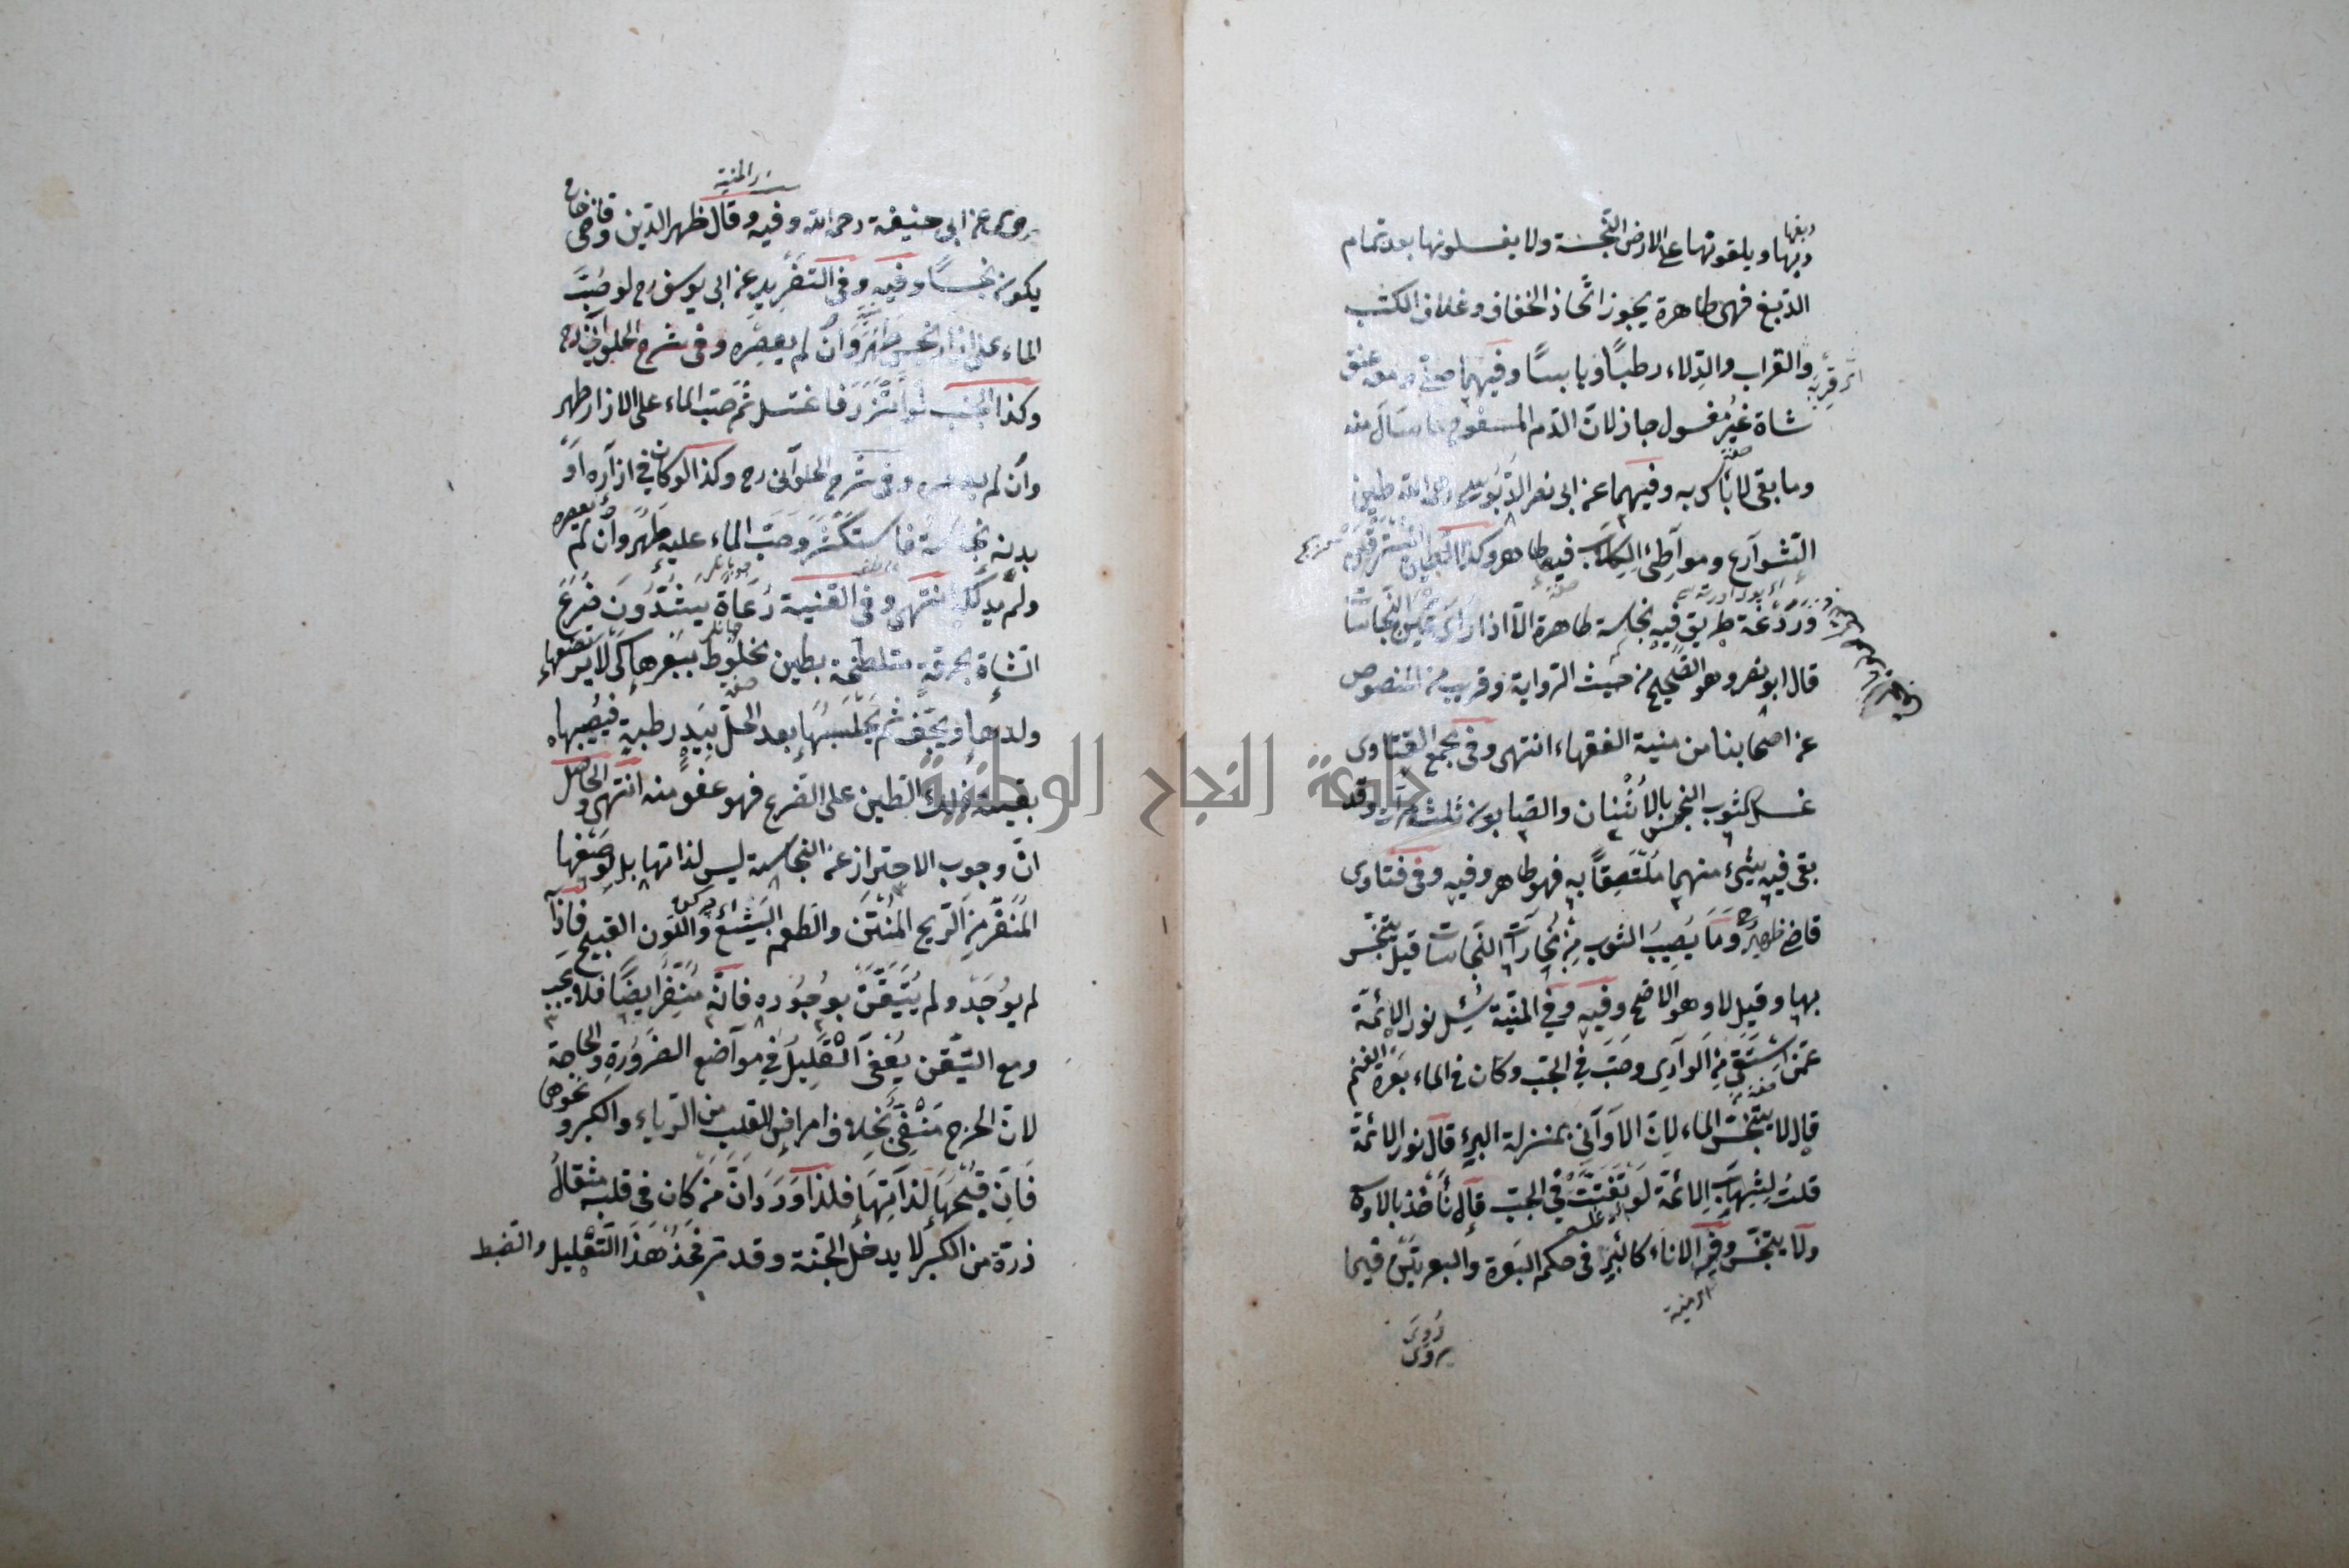 دبغها
دبها ويلقونها على الارض النجسة ولا يغسلونها بعد تمام
الدبغ فهى طاهرة يجوز اتخاذ الخفاف وغلاف الكتب
والقراب والدلاء رطبًا ويابسًا وفيهما صلى ومعه عنق
شاة غير مغسول جاز لان الدم المسفوح ما سال منه
وما بقى لا بأس به وفيهما عن ابى نصر الدبوسى رحمه الله طين
الشوارع ومواطئ الكلاب فيه طاهر وكذا الطين المسرقن
وردغة طريق فيه نجاسة طاهرة الا اذا رأى عين النجاسات
قال ابو نصر وهو الصحيح من حيث الرواية وقريب من المنصوص
عن اصحابنا من منية الفقهاء انتهى وفى مجمع الفتاوى
غسل الثوب النجس بالاشنان والصابون ثلث مرات وقد
بقى فيه شىء منهما ملتصقًا به فهو طاهر وفيه وفى فتاوى
قاضى ظهير وما يصيب الثوب من بخارات النجاسات قيل يتنجس
بها وقيل لا وهو الاصح وفيه وفى المنية سئل نور الائمة
عمن استقى من الوادى وصب فى الحب وكان فى الماء بعرة الغنم
قال لا يتنجس الماء لان الاوانى بمنزلة البير قال نور الائمة
قلت لشهاب الائمة لو تفتت فى الحب قال نأخذ بالاوله
ولا يتنجس وفى الاناء كالبير فى حكم البعرة والبعرتين فيما
روى
يروى
رحمه عن ابى حنيفة رحمه الله وفيه وقال ظهير الدين وقاضى خان
يكون نجسًا وفيه وفى التفريد عن ابى يوسف رح لو صب
الماء على ازار نجس طهر وان لم يعصره وفى شرح الحلوانى رح
وكذا الجنب لو اتزر فاغتسل ثم صب الماء على الازار طهر
وان لم يعصره وفى شرح الحلوانى رح وكذا لو كان فى ازاره او
بدنه نجاسة فاستكثر وصب الماء عليه طهر وان لم يعصره
ولم يدلك انتهى وفى القنية رعاة يشدون ضرع
الشاة بخرقة متلطخة بطين مخلوط ببعرها كى لا يرتضعها
ولدها ويجف ثم يحلبها بعد الحل بيد رطبة فيصيبها
بقية ذلك الطين على الضرع فهو عفو منه انتهى والحاصل
ان وجوب الاحتراز عن النجاسة ليس لذاتها بل لوصفها
المنفر من الريح المنتن والطعم البشيع واللون القبيح فاذا
لم يوجد ولم يتيقن بوجوده فانه منفر ايضًا فلا يجب
ومع التيقن يعفى القليل فى مواضع الضرورة والحاجة
لان الحرج منفى بخلاف امراض القلب من الرياء والكبر ونحوها
فان قبحها لذاتها فلذا ورد ان من كان فى قلبه مثقال
ذرة من الكبر لا يدخل الجنة وقد مر فخذ هذا التعليل والضبط
جامعة النجاح الوطنية